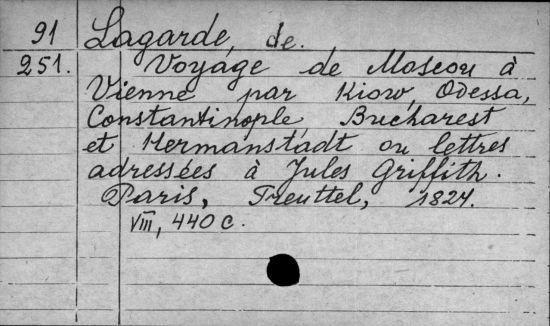 91 Lagarde, de.
251. Voyage de Moscou à
Vienne par Kiow, Odessa,
Constantinople, Bucharest
et Hermanstadt ou lettres
adressées à Jules Griffith.
Paris, Treuttel, 1824.
VIII, 440 c.